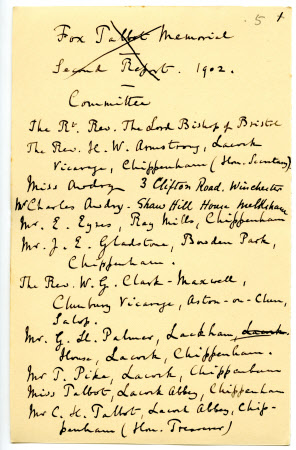 5 1
Fox Talbot Memorial
Second Report. 1902.
Committee
The Rt. Rev. The Lord Bishop of Bristol
The Rev. H. W. Armstrong, Lacock
Vicarage, Chippenham (Hon. Secretary)
Miss Awdry 3 Clifton Road, Winchester
Mr Charles Awdry. Shaw Hill House Melksham
Mr. E. Eyres, Ray Mills, Chippenham
Mr. J. E. Gladstone, Bowden Park,
Chippenham.
The Rev. W. G. Clark-Maxwell,
Clunbury Vicarage, Aston-on-Clun,
Salop.
Mr. G. H. Palmer, Lackham, Lacock
House, Lacock, Chippenham.
Mr T. Pike, Lacock, Chippenham
Miss Talbot, Lacock Abbey, Chippenham
Mr C. H. Talbot, Lacock Abbey, Chip-
penham (Hon. Treasurer)